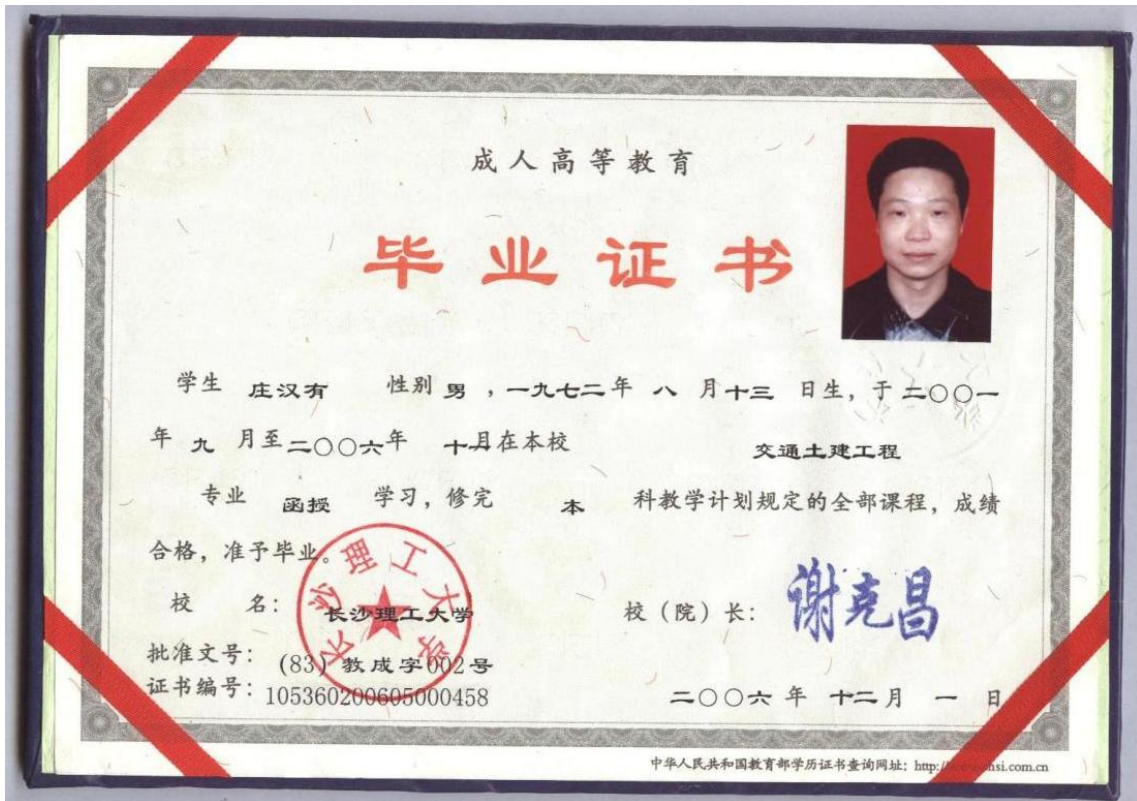 成人高等教育
毕业证书
学生 庄汉有 性别 男 ，一九七二年 八 月十三 日生，于 二〇〇一
年 九 月至二〇〇六年 十月在本校 交通土建工程
专业 函授 学习，修完 本 科教学计划规定的全部课程，成绩
合格，准予毕业。
长沙理工大学
校 名： 长沙理工大学 校（院）长： 谢克昌
批准文号： (83) 教成字002号
证书编号：105360200605000458 二〇〇六 年 十二月 一 日
中华人民共和国教育部学历证书查询网址：http://
hsi.com.cn